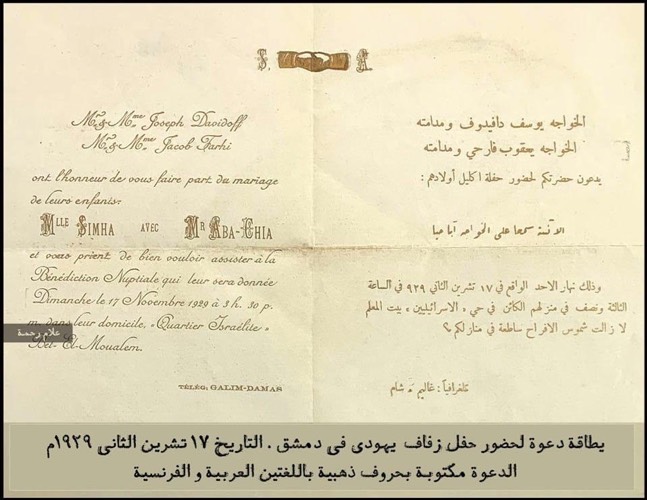 S. A.
Mr & Mme Joseph Davidoff
Mr & Mme Jacob Farhi
ont l'honneur de vous faire part du mariage
de leurs enfants:
Mlle Simha avec Mr Aba-Chia
et vous prient de bien vouloir assister à la
Bénédiction Nuptiale qui leur sera donnée
Dimanche le 17 Novembre 1929 à 3 h. 30 p.
m. dans leur domicile, «Quartier Israëlite»
Bet-El-Moualem.
TÉLÉG: GALIM-DAMAS
الخواجه يوسف دافيدوف ومدامته
الخواجه يعقوب فارحي ومدامته
يدعون حضرتكم لحضور حفلة اكليل أولادهم:
الآنسة سمحا على الخواجه آبا حيا
وذلك نهار الاحد الواقع في ١٧ تشرين الثاني ٩٢٩ في الساعة
الثالثة ونصف في منزلهم الكائن في حي الاسرائيليين بيت المعلم
لا زالت شموس الافراح ساطعة في منازلكم
تلغرافياً: غاليم شام
علام رحمة
بطاقة دعوة لحضور حفل زفاف يهودي في دمشق . التاريخ ١٧ تشرين الثاني ١٩٢٩م
الدعوة مكتوبة بحروف ذهبية باللغتين العربية و الفرنسية